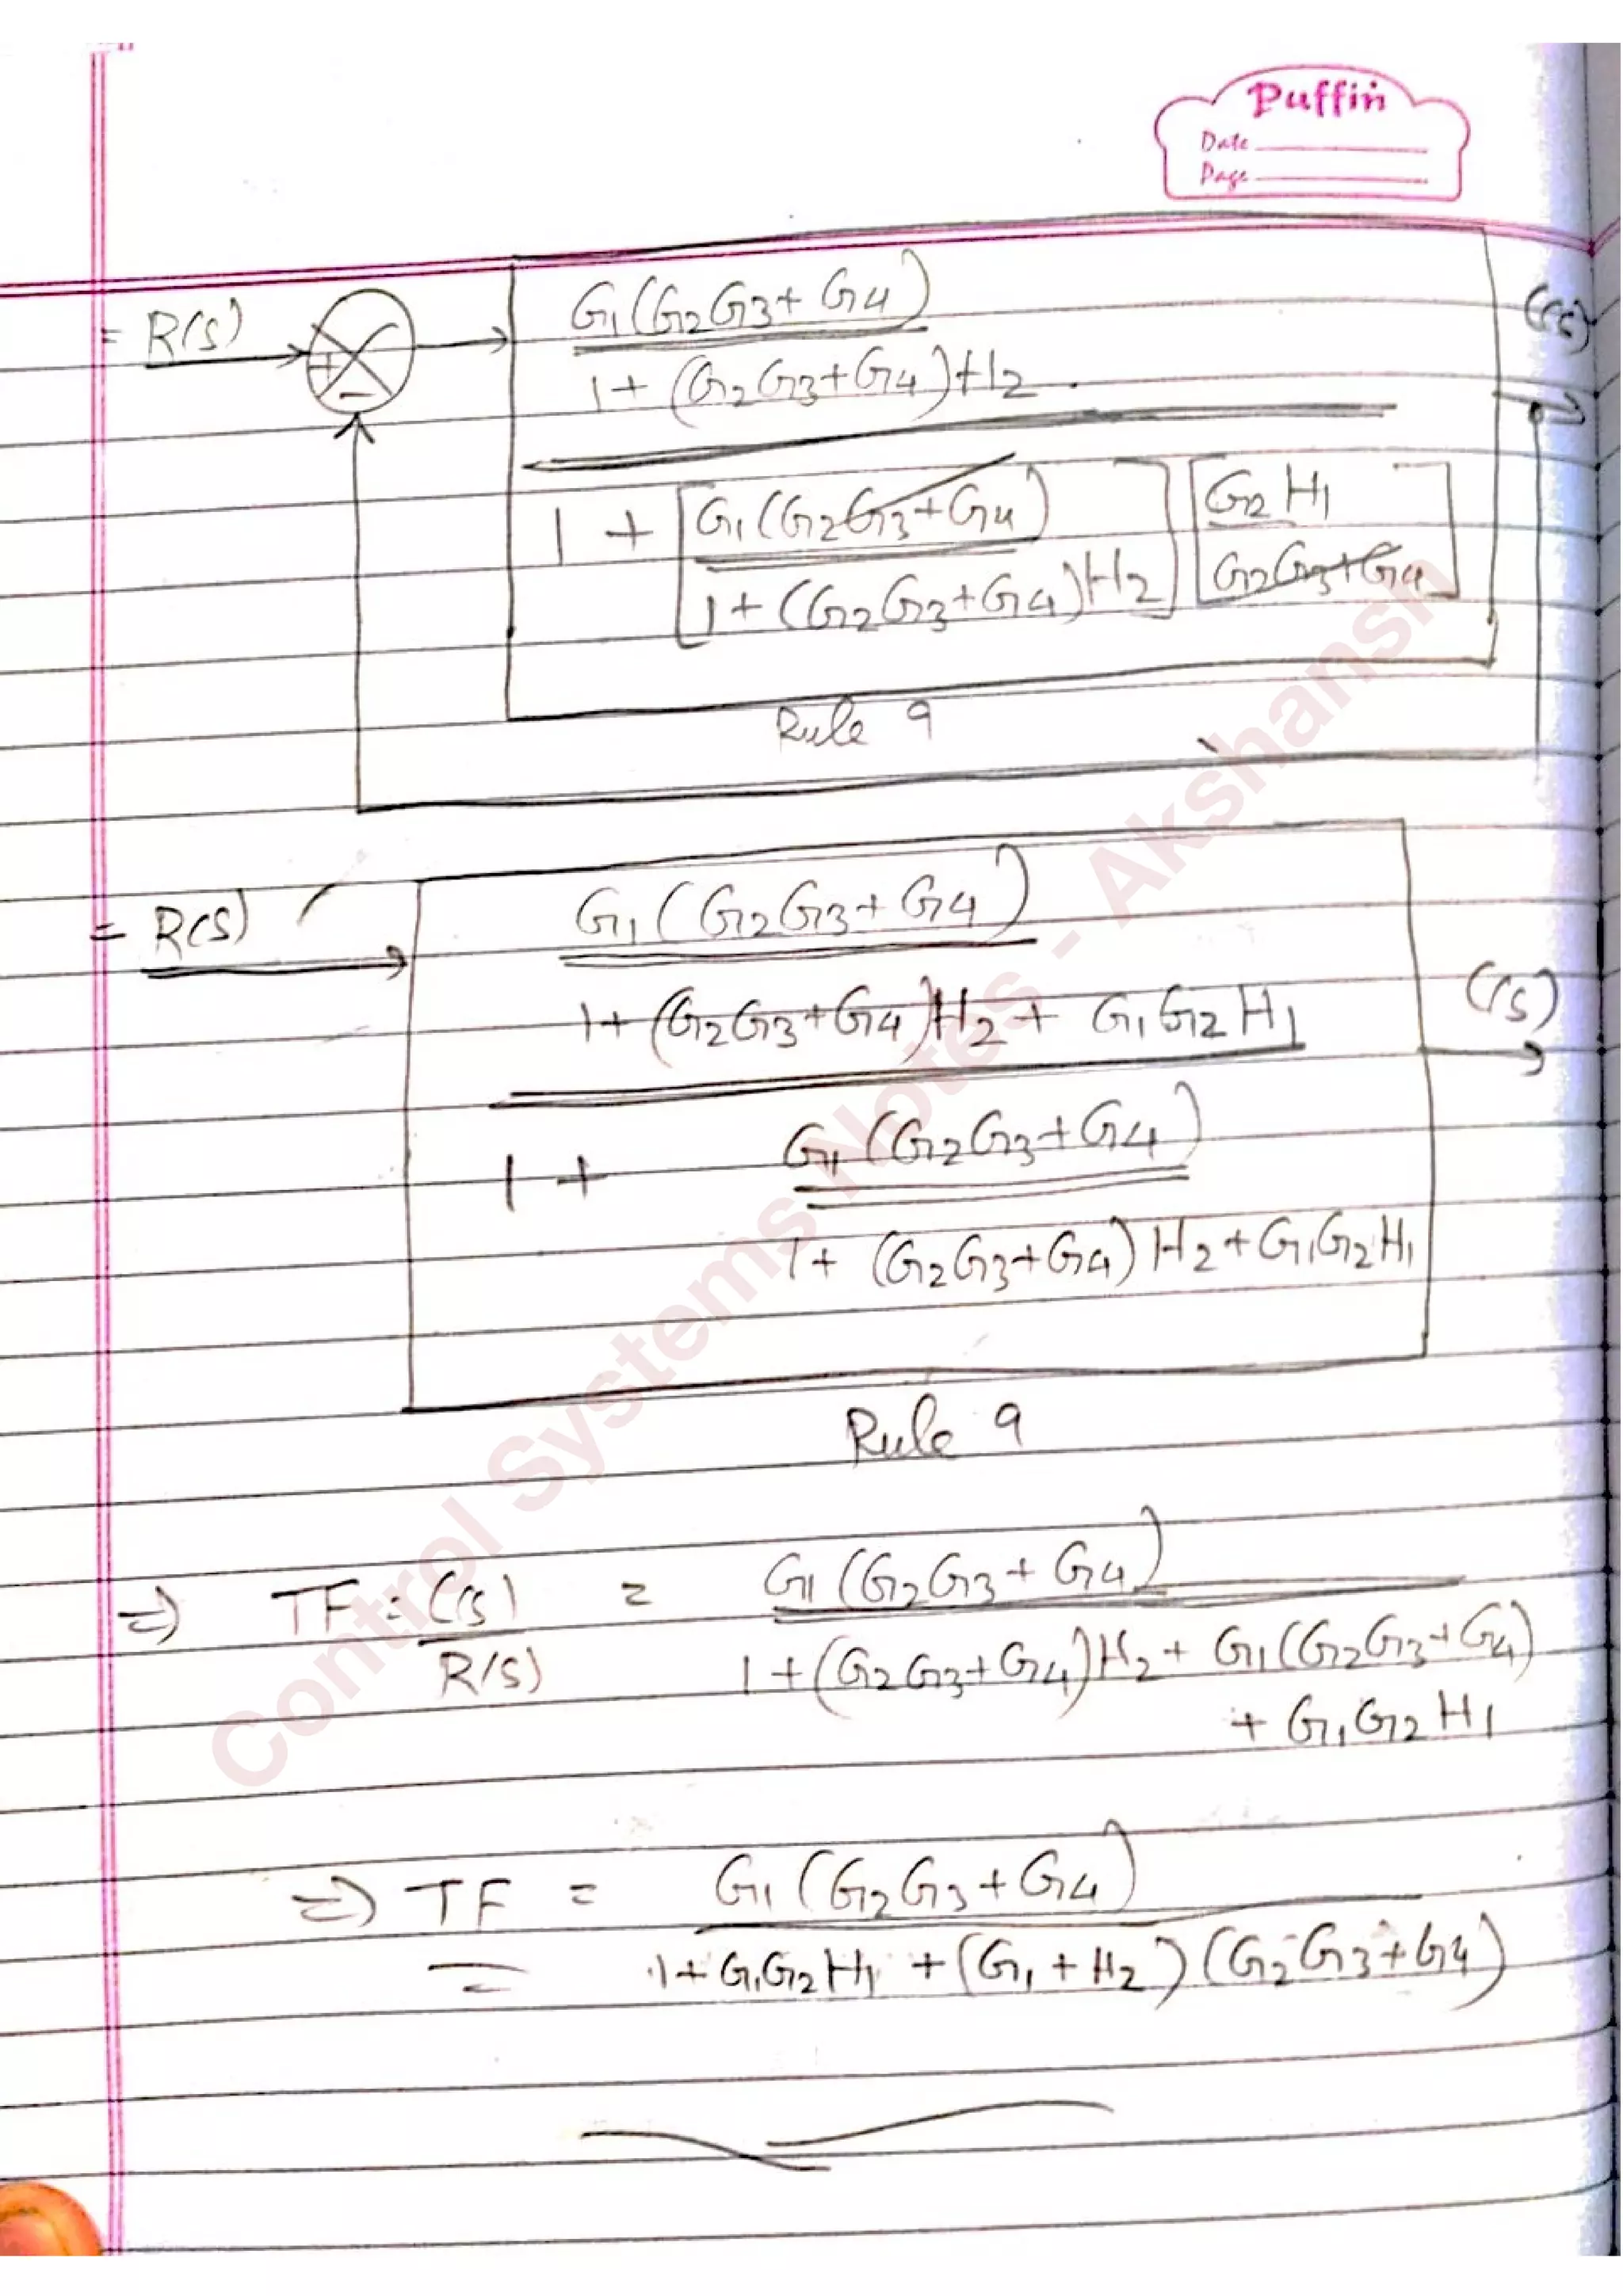 Puffin
Date
Page
= R(s) + - G1(G2G3+G4) C(s)
1+(G2G3+G4)H2
1 + [G1(G2G3+G4) [G2H1
1+(G2G3+G4)H2] G2G3+G4]
Rule 9
= R(s) G1(G2G3+G4)
1+(G2G3+G4)H2 + G1G2H1 C(s)
1 + G1(G2G3+G4)
1+ (G2G3+G4)H2+G1G2H1
Rule 9
=> TF = C(s) = G1(G2G3+G4)
R(s) 1+(G2G3+G4)H2+ G1(G2G3+G4)
+ G1G2H1
=> TF = G1(G2G3+G4)
1+G1G2H1 +(G1+H2)(G2G3+G4)
Control Systems Notes - Akshansh